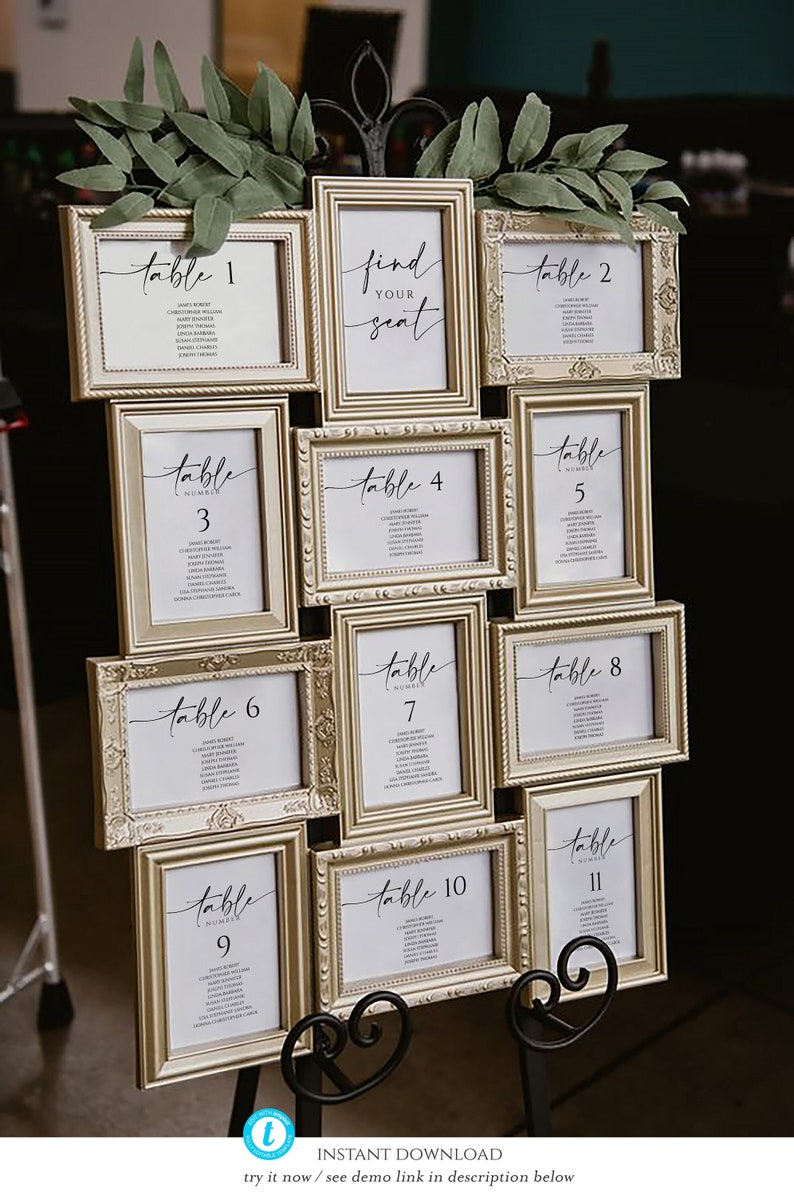 table 1
JAMES ROBERT
CHRISTOPHER WILLIAM
MARY JENNIFER
JOSEPH THOMAS
LINDA BARBARA
SUSAN STEPHANIE
DANIEL CHARLES
find
YOUR
seat
table 2
JAMES ROBERT
CHRISTOPHER WILLIAM
MARY JENNIFER
JOSEPH THOMAS
LINDA BARBARA
SUSAN STEPHANIE
DANIEL CHARLES
JOSEPH THOMAS
table
NUMBER
3
CHRISTOPHER WILLIAM
MARY JENNIFER
JOSEPH THOMAS
LINDA BARBARA
SUSAN STEPHANIE
DANIEL CHARLES
LISA STEPHANIE SANDRA
DONNA CHRISTOPHER CAROL
table 4
JAMES ROBERT
CHRISTOPHER WILLIAM
MARY JENNIFER
JOSEPH THOMAS
LINDA BARBARA
SUSAN STEPHANIE
DANIEL CHARLES
table
NUMBER
5
JAMES ROBERT
CHRISTOPHER WILLIAM
MARY JENNIFER
JOSEPH THOMAS
LINDA BARBARA
SUSAN STEPHANIE
DANIEL CHARLES
table 6
JOSEPH THOMAS
CHRISTOPHER WILLIAM
MARY JENNIFER
LINDA BARBARA
SUSAN STEPHANIE
DANIEL CHARLES
JOSEPH THOMAS
table
NUMBER
7
JAMES ROBERT
CHRISTOPHER WILLIAM
MARY JENNIFER
JOSEPH THOMAS
LINDA BARBARA
SUSAN STEPHANIE
DANIEL CHARLES
LISA STEPHANIE SANDRA
table 8
JAMES ROBERT
CHRISTOPHER WILLIAM
MARY JENNIFER
LINDA BARBARA
SUSAN STEPHANIE
DANIEL CHARLES
JOSEPH THOMAS
table
NUMBER
9
JOSEPH THOMAS
CHRISTOPHER WILLIAM
MARY JENNIFER
JAMES ROBERT
LINDA BARBARA
SUSAN STEPHANIE
DANIEL CHARLES
LISA STEPHANIE SANDRA
DONNA CHRISTOPHER CAROL
table 10
JAMES ROBERT
CHRISTOPHER WILLIAM
MARY JENNIFER
JOSEPH THOMAS
LINDA BARBARA
SUSAN STEPHANIE
DANIEL CHARLES
table
NUMBER
11
JAMES ROBERT
CHRISTOPHER WILLIAM
MARY JENNIFER
t
INSTANT DOWNLOAD
try it now / see demo link in description below